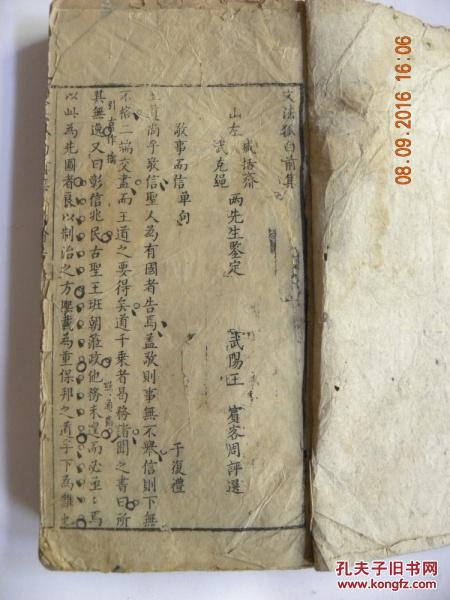 文法狐白前集
山左 武克繩 兩先生鑒定
武陽王 賓客周評選
敬事而信單句
于復禮
王道尚乎敬信聖人為有國者告焉蓋敬則事無不舉信則下無
不格二端交盡而王道之要得矣道千乘者曷務諸聞之書曰所
其無逸又曰彰信兆民古聖王班朝蒞政他務未遑而必亟亟焉
以此為先圖者良以制治之方為重保邦之道孚下為難也
引書作據
08.09.2016 16:06
孔夫子旧书网
www.kongfz.com